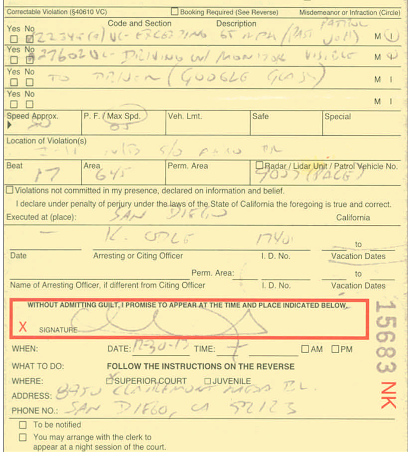 Correctable Violation (§40610 VC) Booking Required (See Reverse) Misdemeanor or Infraction (Circle)
Yes No Code and Section Description
22349(a) VC - EXCEEDING 65 MPH M I
Yes No
27602 VC - DRIVING W/ MONITOR VISIBLE M I
Yes No
TO DRIVER (GOOGLE GLASS) M I
Yes No
M I
Speed Approx. P. F. / Max Spd. Veh. Lmt. Safe Special
65
Location of Violation(s)
Beat Area Perm. Area Radar / Lidar Unit / Patrol Vehicle No.
17 645 (PACE)
Violations not committed in my presence, declared on information and belief.
I declare under penalty of perjury under the laws of the State of California the foregoing is true and correct.
Executed at (place): SAN DIEGO California
K. to
Date Arresting or Citing Officer I. D. No. Vacation Dates
Perm. Area: to
Name of Arresting Officer, if different from Citing Officer I. D. No. Vacation Dates
WITHOUT ADMITTING GUILT, I PROMISE TO APPEAR AT THE TIME AND PLACE INDICATED BELOW.
X SIGNATURE
15683 NK
WHEN: DATE: TIME: AM PM
WHAT TO DO: FOLLOW THE INSTRUCTIONS ON THE REVERSE
WHERE: SUPERIOR COURT JUVENILE
ADDRESS: 8950 CLAIREMONT MESA BL.
PHONE NO.: SAN DIEGO, CA 92123
To be notified
You may arrange with the clerk to
appear at a night session of the court.